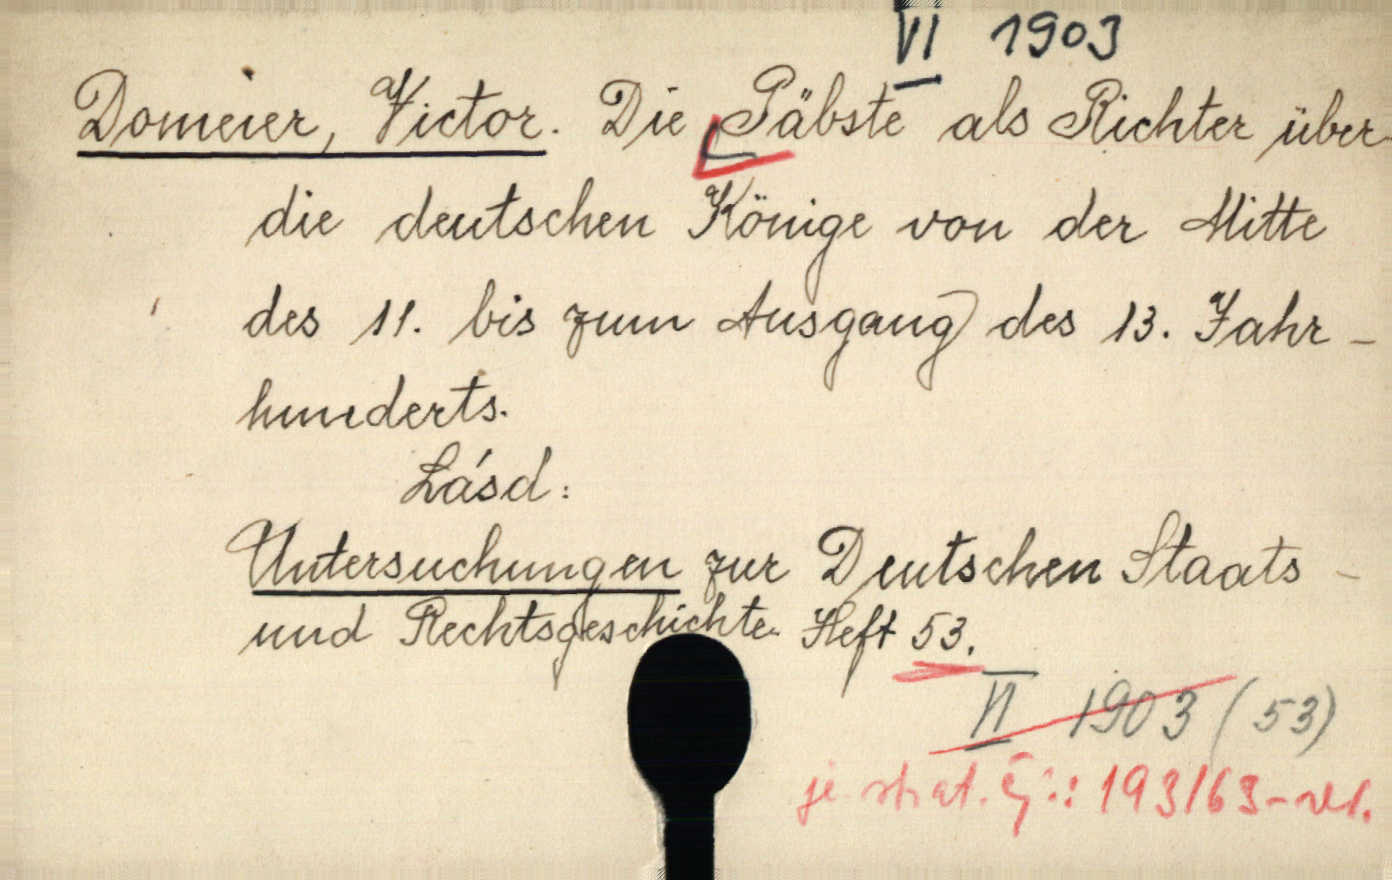 VI 1903
Domeier, Victor. Die Päbste als Richter über
die deutschen Könige von der Mitte
des 11. bis zum Ausgang des 13. Jahr-
hunderts.
Lásd:
Untersuchungen zur Deutschen Staats-
und Rechtsgeschichte. Heft 53.
VI 1903 (53)
193/63